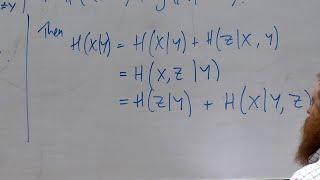 Then
H(X|Y) = H(X|Y) + H(Z|X,Y)
= H(X,Z|Y)
= H(Z|Y) + H(X|Y,Z)